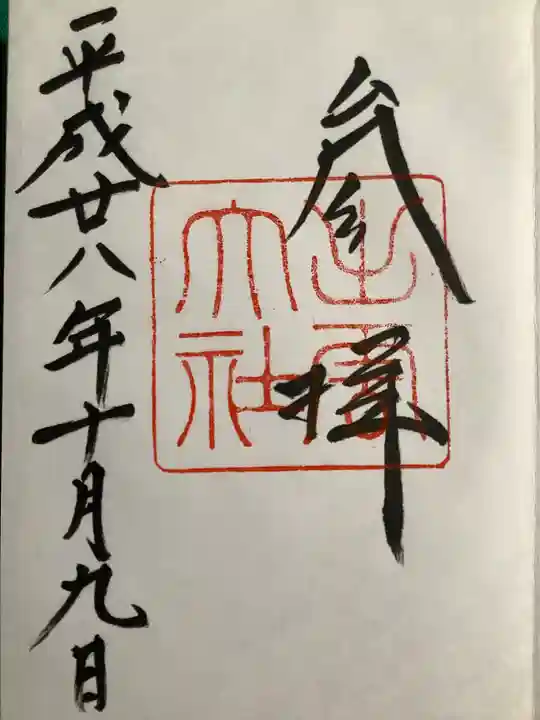 参拝
出雲
大社
平成廿八年十月九日